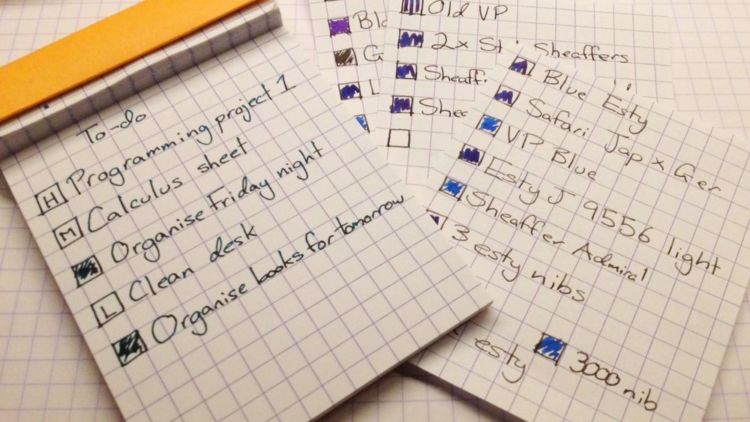 To-do
H Programming project 1
M Calculus sheet
Organise Friday night
L Clean desk
Organise books for tomorrow
Old VP
2x Sheaffers
Blue Esty
Safari Jap x Ger
VP Blue
Esty J 9556 light
Sheaffer Admiral
3 esty nibs
esty
3000 nib